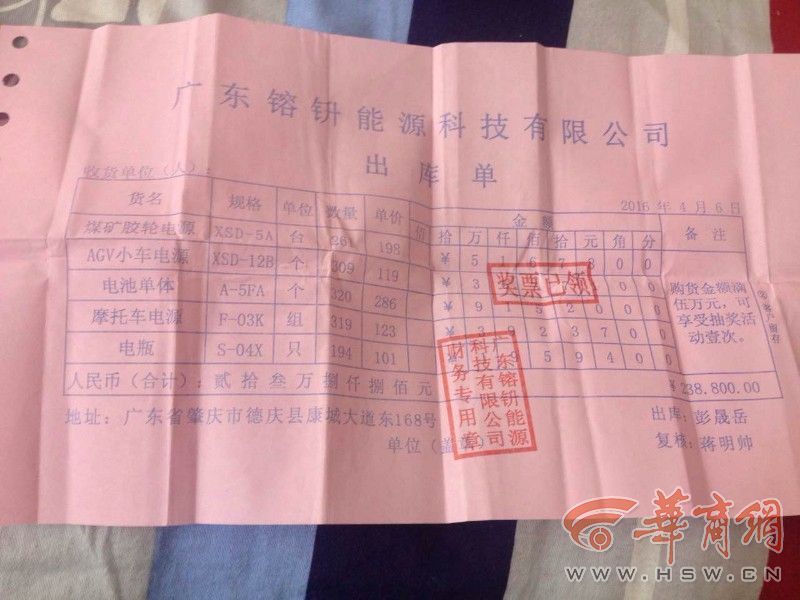 广东镕钘能源科技有限公司
出库单
收货单位(人):
2016 年 4 月 6 日
货名 规格 单位 数量 单价 金额 备注
佰 拾 万 仟 佰 拾 元 角 分
煤矿胶轮电源 XSD-5A 台 261 198 ¥ 5 1 6 7 8 0 0
AGV小车电源 XSD-12B 个 309 119 ¥ 3
电池单体 A-5FA 个 320 286 ¥ 9 1 5 2 0 0 0
摩托车电源 F-03K 组 319 123 ¥ 3 9 2 3 7 0 0
电瓶 S-04X 只 194 101 9 5 9 4 0 0
购货金额满
伍万元,可
享受抽奖活
动壹次。
②客户留存
奖票已领
人民币(合计):贰拾叁万捌仟捌佰元 ¥238.800.00
地址:广东省肇庆市德庆县康城大道东168号
出库:彭晟岳
单位(盖章)
复核:蒋明帅
广东镕钘能源
科技有限公司
财务专用章
华商网
WWW.HSW.CN